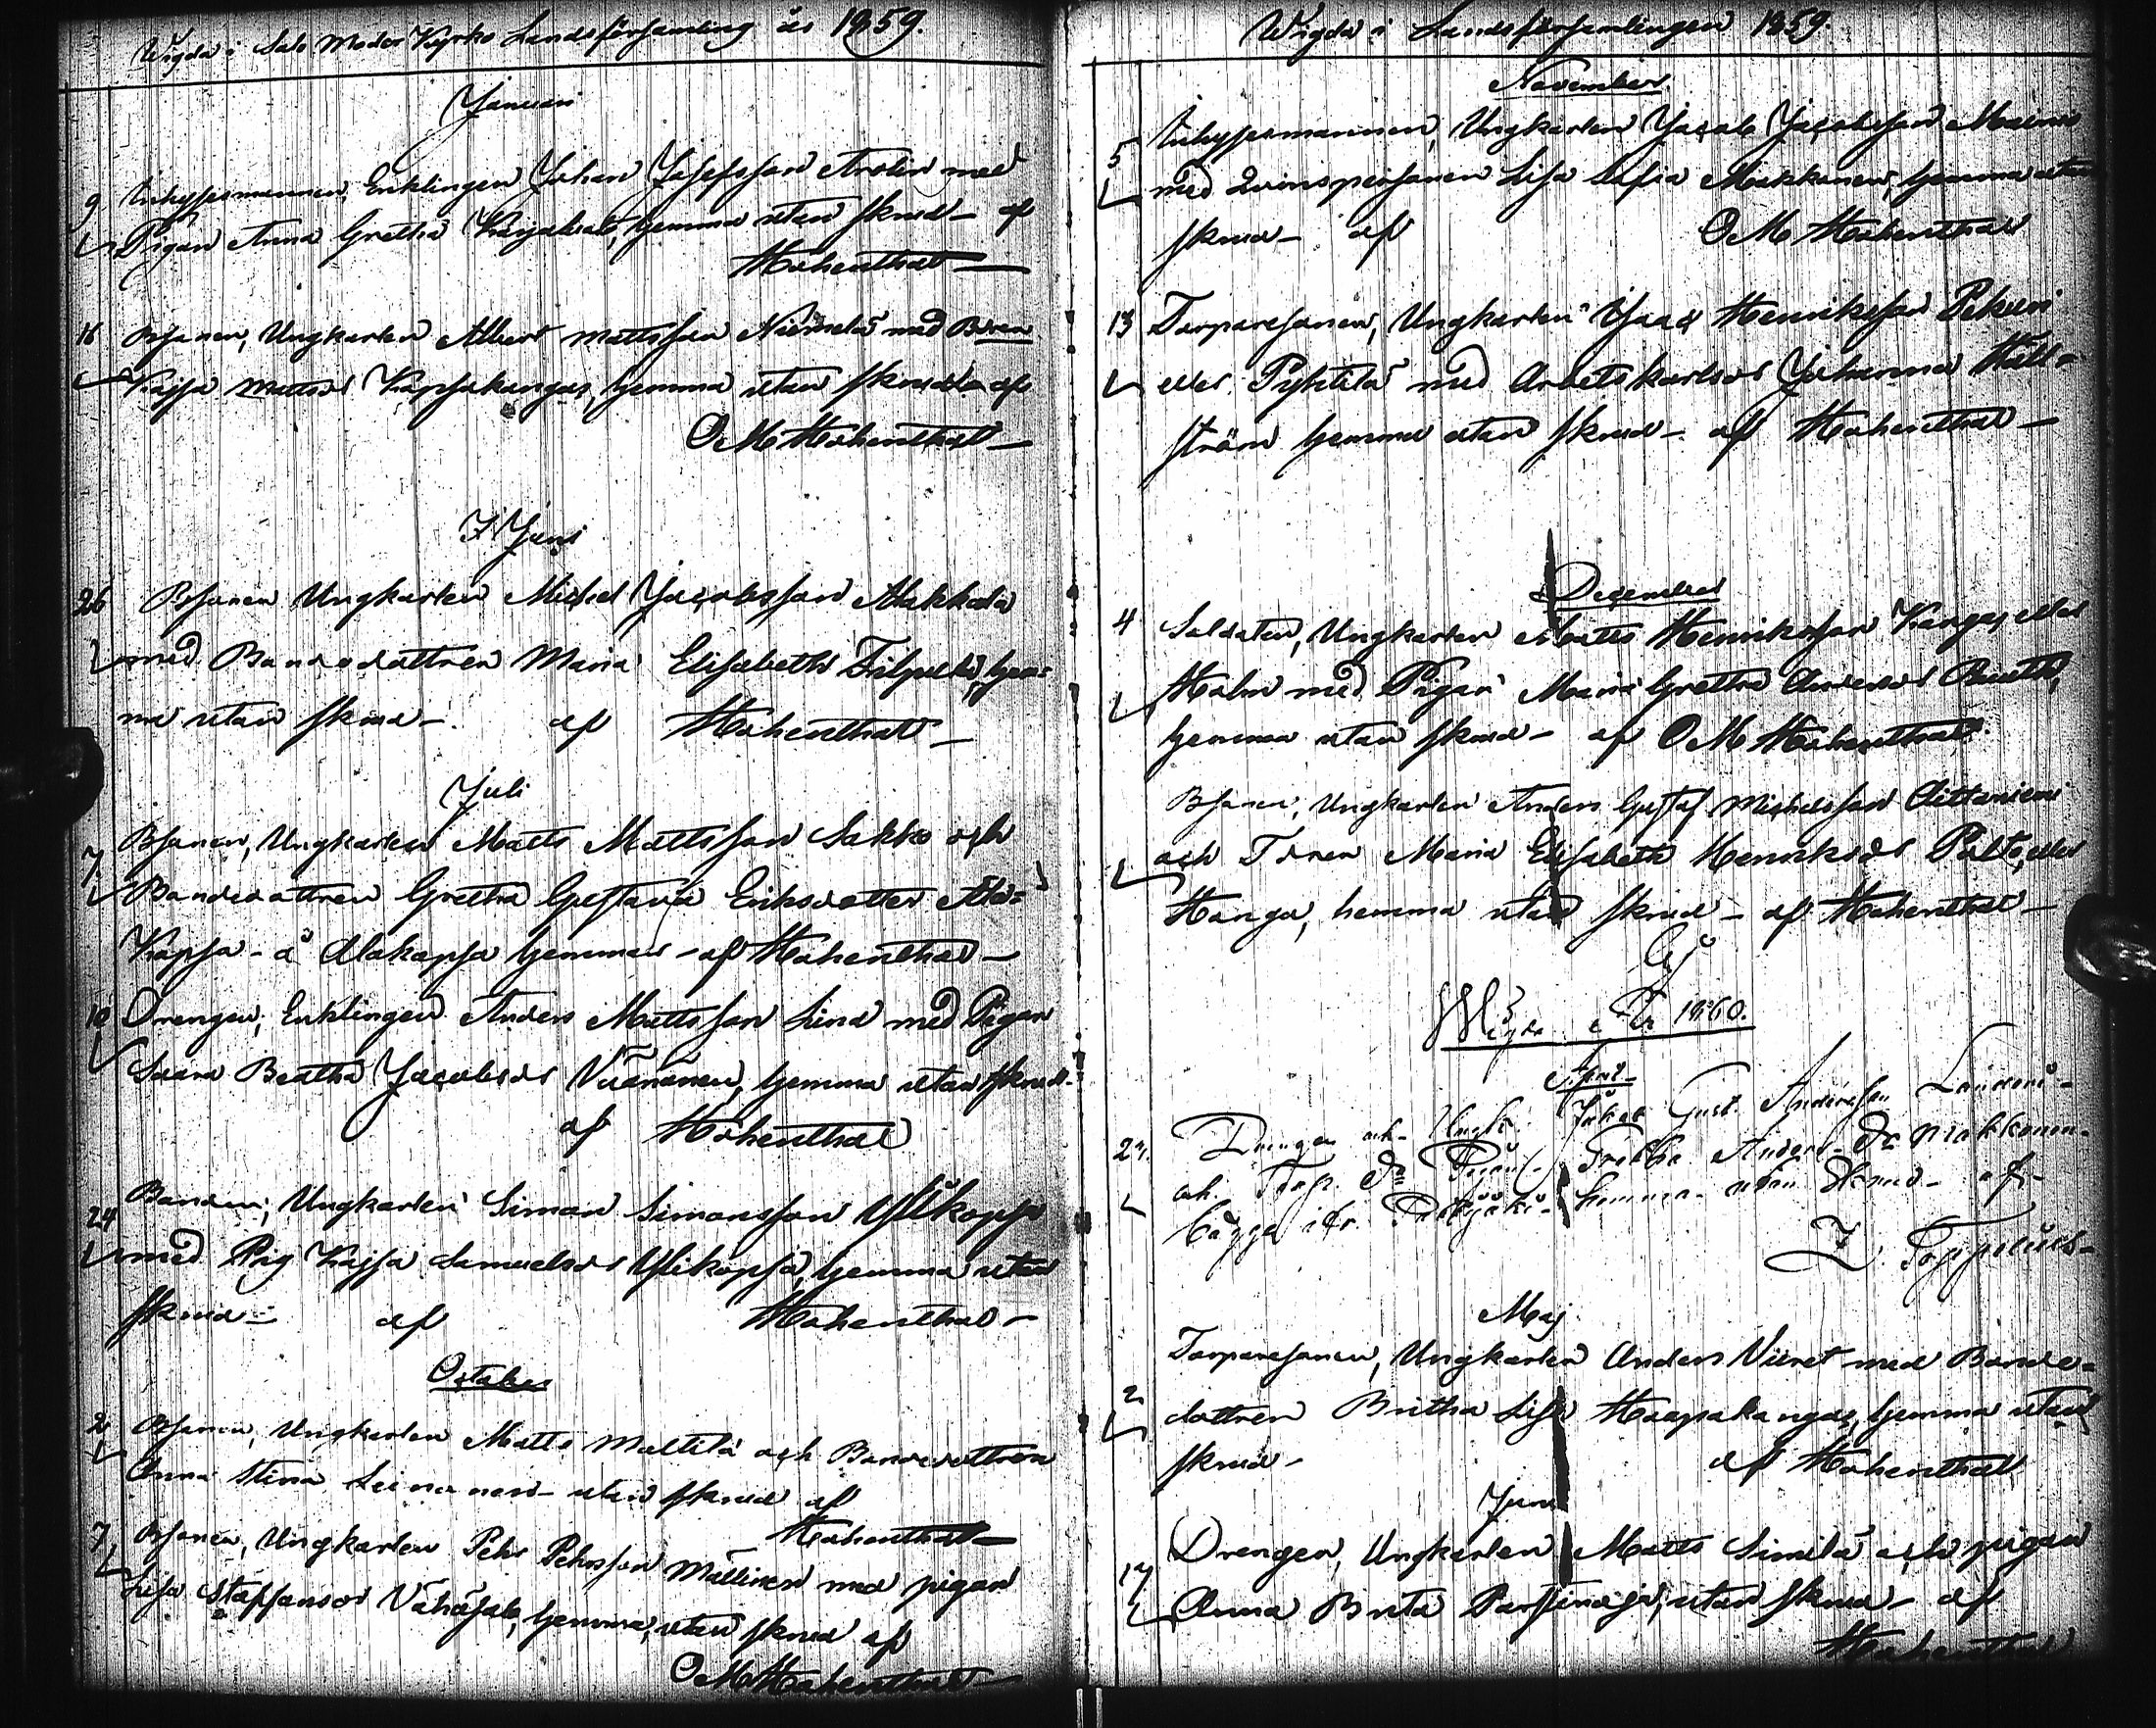 Wigda i Salo Moder Kyrko Landsförsamling år 1859.
Januari
9 Inhysesmannen, Enklingen Johan Josefsson Arolin med
Pigan Anna Gretha Karjalab, hemma utan skrud – af
Hohenthal –
16 Bsonen, Ungkarlen Albert Mattsson Niemelä med Bdren
Kajsa Mattsdr Kopsakangas, hemma utan skrud af
OM Hohenthal –
I Juni
26 Bsonen Ungkarlen Michel Jacobsson
med Bondedottren Maria Elisabeth hem=
ma utan skrud – af Hohenthal –
Juli
7 Bsonen, Ungkarlen Matts Mattsson Sakko och
Bondedottren Gretha Gustava Eriksdotter Ala=
Kopsa – å Alakopsa hemman – af Hohenthal –
10 Drengen, Enklingen Anders Mattsson Lind med Pigan
Saara Beatha Jacobsdr Väänänen, hemma utan skrud –
af Hohenthal
24 Bonden, Ungkarlen Simon Simonsson Ylikopsa
med Pig Kajsa Samuelsdr Ylikopsa, hemma utan
skrud – af Hohenthal –
October
2 Bsonen, Ungkarlen Matts Mattila och Bondedottren
Anna Stina Leinonen – utan skrud af
Hohenthal –
7 Bsonen, Ungkarlen Pehr Pehrsson Mällinen med pigan
Lisa Staffansdr Vähäsalo, hemma, utan skrud af
OM Hohenthal –
Wigda i Landsförsamlingen 1859.
November
5 Inhysesmannen, Ungkarlen Jacob Jacobsson
med Qvinspersonen Lisa Sofia Makkonen, hemma utan
skrud – af OM Hohenthal
13 Torparesonen, Ungkarlen Isaac Henriksson Pekuri
eller Pyhtilä med Arbetskarlsdr Johanna Häll=
ström hemma utan skrud – af Hohenthal –
December
4 Soldaten, Ungkarlen Matts Henriksson Kangas eller
Holm med Pigan Maria Gretha Andersdr
hemma utan skrud – af OM Hohenthal
Bsonen, Ungkarlen Anders Gustaf Michelsson Aittaniemi
och Tdren Maria Elisabeth Henriksdr Palto, eller
Hanga, hemma utan skrud – af Hohenthal –
Wigde År 1860.
April
24. Drengen och Ungk. Johan Gust. Andersson
och Torp. dr Gretha Anders dr Makkonen –
bägge ifr. Pattijoki – hemma utan Skrud – af –
Z. Toppelius –
Maj
2 Torparesonen, Ungkarlen Anders Viiret med Bonde=
dottren Britha Lisa Haapakangas, hemma utan
skrud – af Hohenthal
Juni
17 Drengen, Ungkarlen Matts Similä och pigan
Anna Brita utan skrud – af
Hohenthal